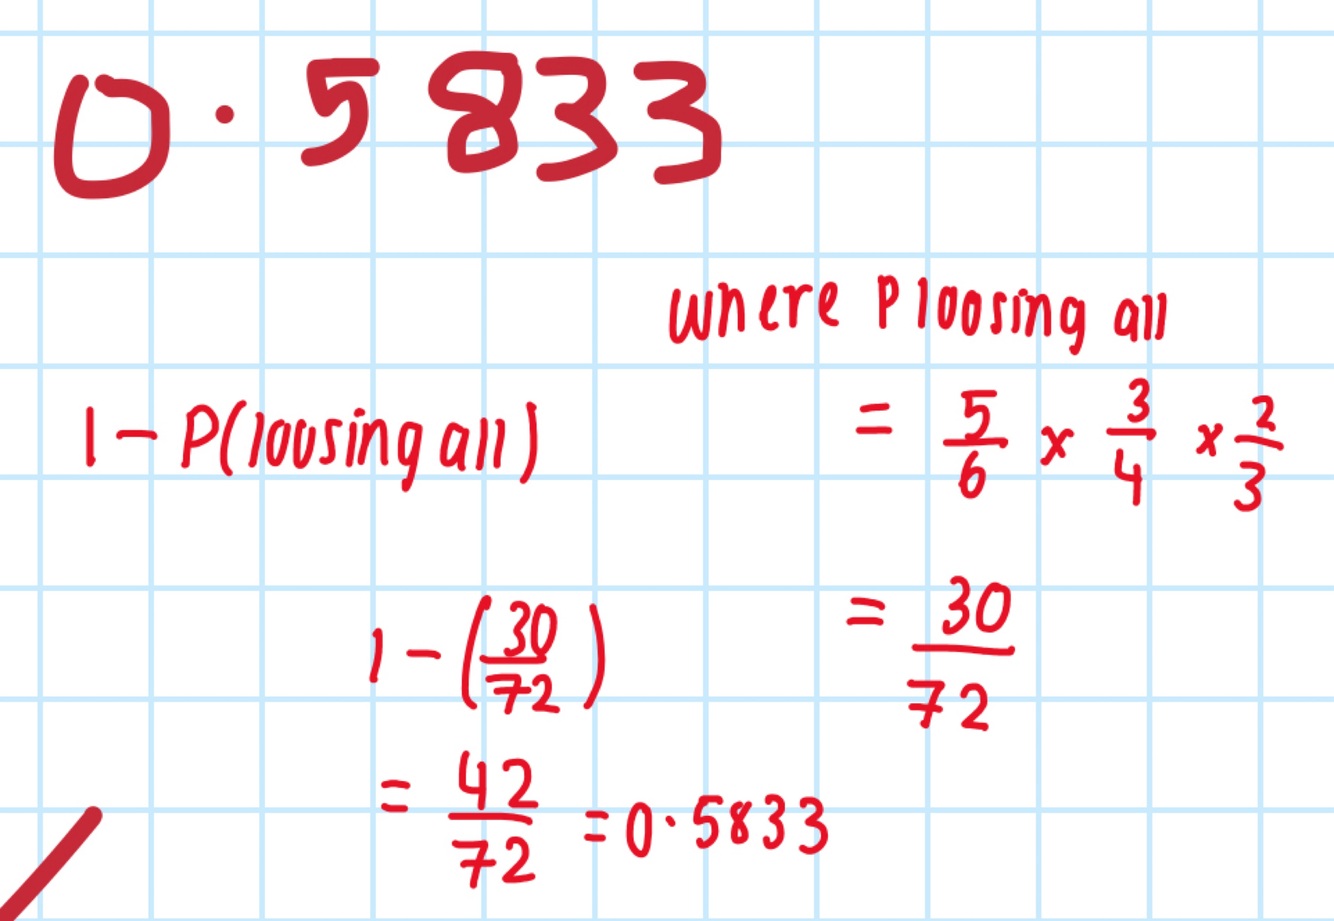 0.5833
where P loosing all
1 - P(loosing all)
= 5/6 x 3/4 x 2/3
1 - (30/72)
= 30/72
= 42/72 = 0.5833